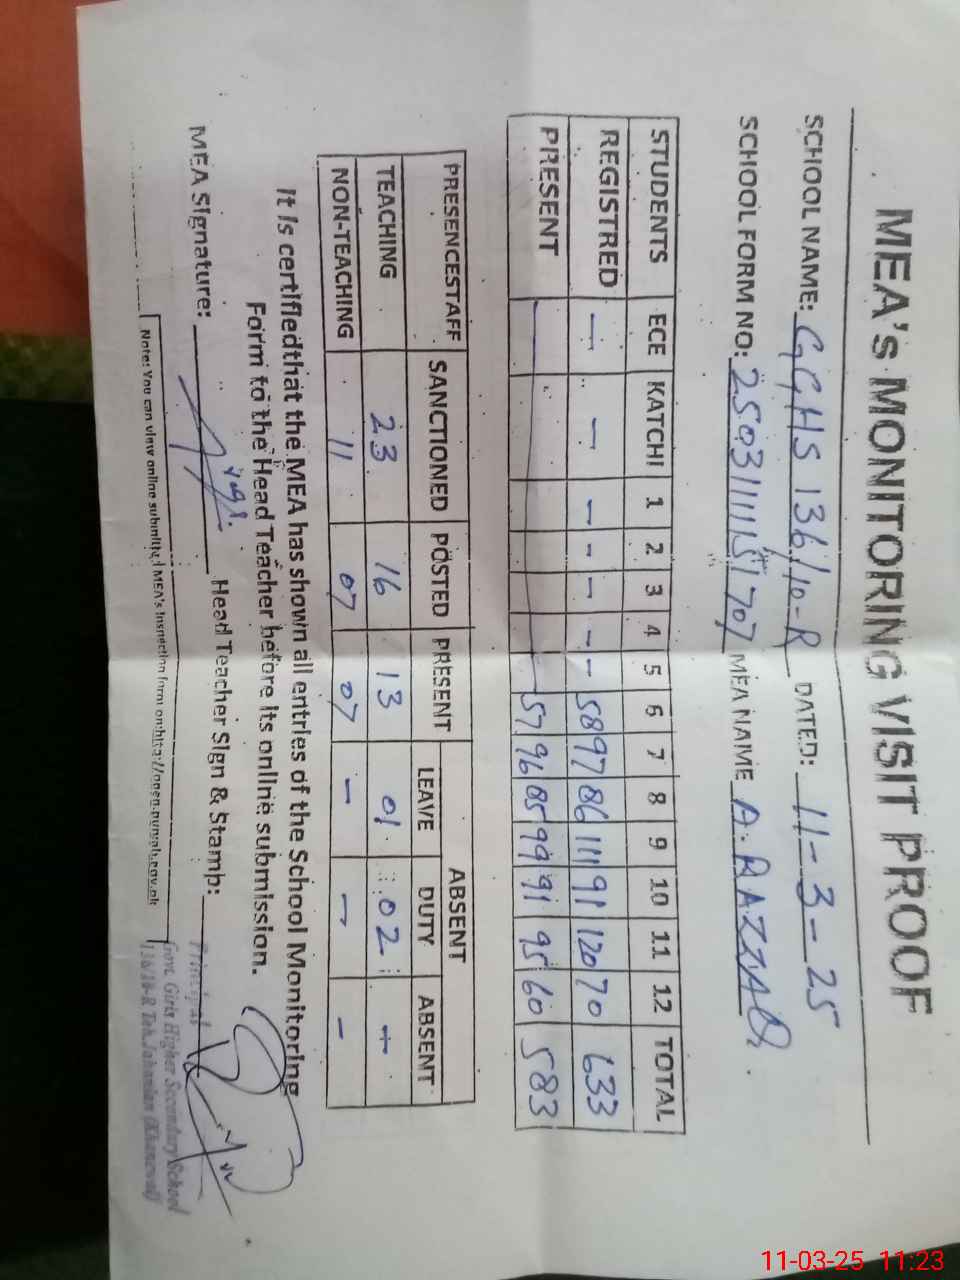 MEA'S MONITORING VISIT PROOF
SCHOOL NAME: GGHS 136/10-R DATED: 11-3-25
SCHOOL FORM NO: 2503111151707 MEA NAME A. RAZZAQ
STUDENTS ECE KATCHI 1 2 3 4 5 6 7 8 9 10 11 12 TOTAL
REGISTRED — — — — — — — 58 97 86 111 91 120 70 633
PRESENT 57 96 85 99 91 95 60 583
PRESENCESTAFF SANCTIONED POSTED PRESENT ABSENT
LEAVE DUTY ABSENT
TEACHING 23 16 13 01 02 —
NON-TEACHING 11 07 07 — — —
It is certifiedthat the MEA has shown all entries of the School Monitoring
Form to the Head Teacher before its online submission.
MEA Signature: Head Teacher Sign & Stamp:
Principal
Govt. Girls Higher Secondary School
136/10-R Teh. Jahanian (Khanewal)
Note: You can view online submitted MEA's Inspection form on:http://open.punjab.gov.pk
11-03-25 11:23